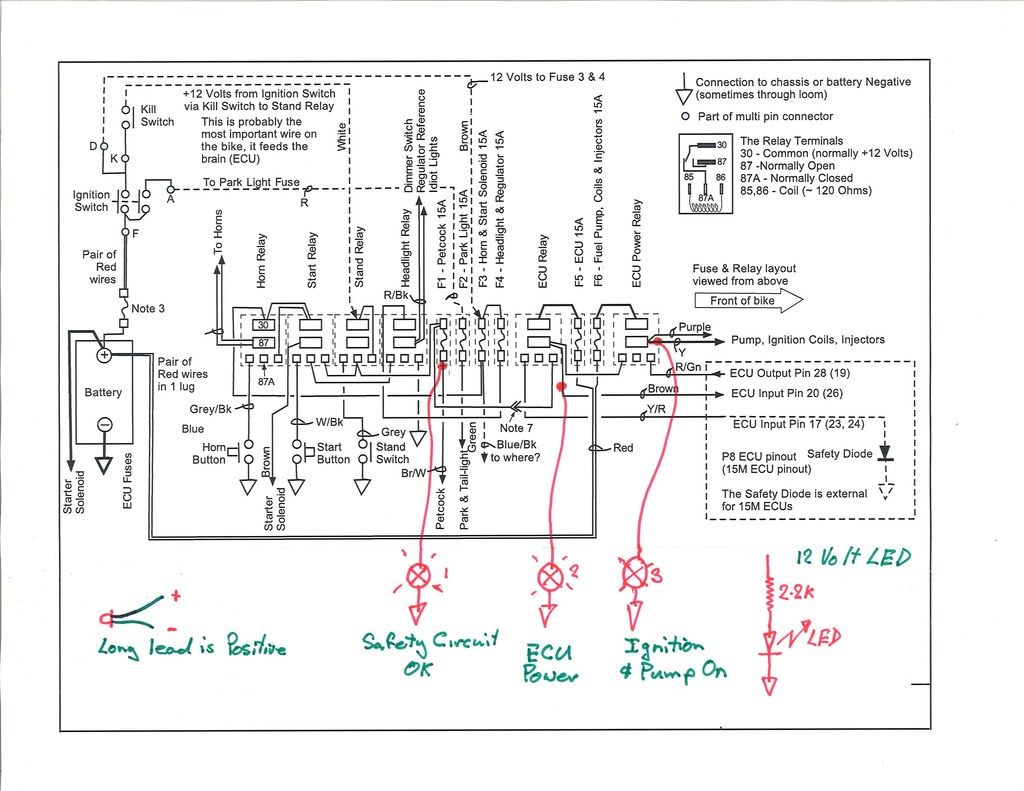 12 Volts to Fuse 3 & 4
+12 Volts from Ignition Switch
via Kill Switch to Stand Relay
This is probably the
most important wire on
the bike, it feeds the
brain (ECU)
Kill
Switch
D
K
Ignition
Switch
A
To Park Light Fuse
R
F
Pair of
Red
wires
Note 3
White
Brown
Dimmer Switch
Regulator Reference
Idiot Lights
Connection to chassis or battery Negative
(sometimes through loom)
Part of multi pin connector
30
87
85
86
87A
The Relay Terminals
30 - Common (normally +12 Volts)
87 -Normally Open
87A - Normally Closed
85,86 - Coil (~ 120 Ohms)
To Horns
Horn Relay
Start Relay
Stand Relay
Headlight Relay
F1 - Petcock 15A
F2 - Park Light 15A
F3 - Horn & Start Solenoid 15A
F4 - Headlight & Regulator 15A
ECU Relay
F5 - ECU 15A
F6 - Fuel Pump, Coils & Injectors 15A
ECU Power Relay
R/Bk
Fuse & Relay layout
viewed from above
Front of bike
30
87
87A
Purple
Y
Pump, Ignition Coils, Injectors
R/Gn
ECU Output Pin 28 (19)
Brown
ECU Input Pin 20 (26)
Y/R
ECU Input Pin 17 (23, 24)
P8 ECU pinout
(15M ECU pinout)
Safety Diode
The Safety Diode is external
for 15M ECUs
Battery
Pair of
Red wires
in 1 lug
Grey/Bk
Blue
Horn
Button
Brown
W/Bk
Start
Button
Grey
Stand
Switch
Br/W
Green
Note 7
Blue/Bk
to where?
Red
Starter
Solenoid
ECU Fuses
Starter
Solenoid
Petcock
Park & Tail-light
1
2
3
12 Volt LED
2.2K
LED
+
-
Long lead is Positive
Safety Circuit
OK
ECU
Power
Ignition
& Pump On